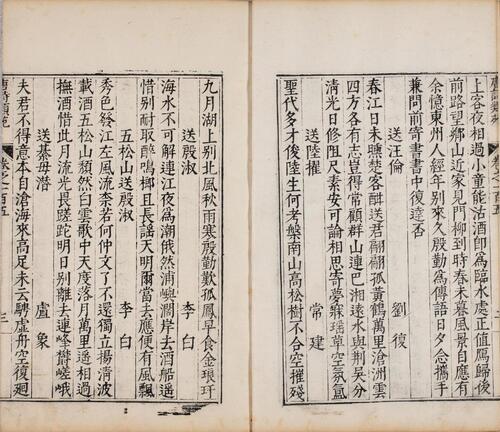 唐詩類苑
上客夜相過小童能沽酒卽為臨水處正值鴈歸後
前路望鄉山近家見門柳到時春未暮風景自應有
余憶東州人經年別來久殷勤為傳語日夕念攜手
兼問前寄書書中復達否
送汪倫 劉復
春江日未曛楚客酣送君翩翩孤黃鶴萬里滄洲雲
四方各有志豈得常顧群山連巴湘遠水與荆吳分
清光日修阻尺素安可論相思寄夢寐瑤草空氛氳
送陸擢 常建
聖代多才俊陸生何考槃南山高松樹不合空摧殘
九月湖上別北風秋雨寒殷勤歎孤鳳早食金琅玕
送殷淑 李白
海水不可解連江夜為潮俄然浦嶼闊岸去酒船遙
惜別耐取醉鳴榔且長謠天明爾當去應便有風飄
五松山送殷淑 李白
秀色發江左風流奈若何仲文了不還獨立揚清波
載酒五松山頹然白雲歌中天度落月萬里遙相過
撫酒惜此月流光畏蹉跎明日別離去連峰鬱嵯峨
送綦毋潛 盧象
夫君不得意本自滄海來高足未云騁虛舟空復迴
唐詩類苑 卷之一百五 三